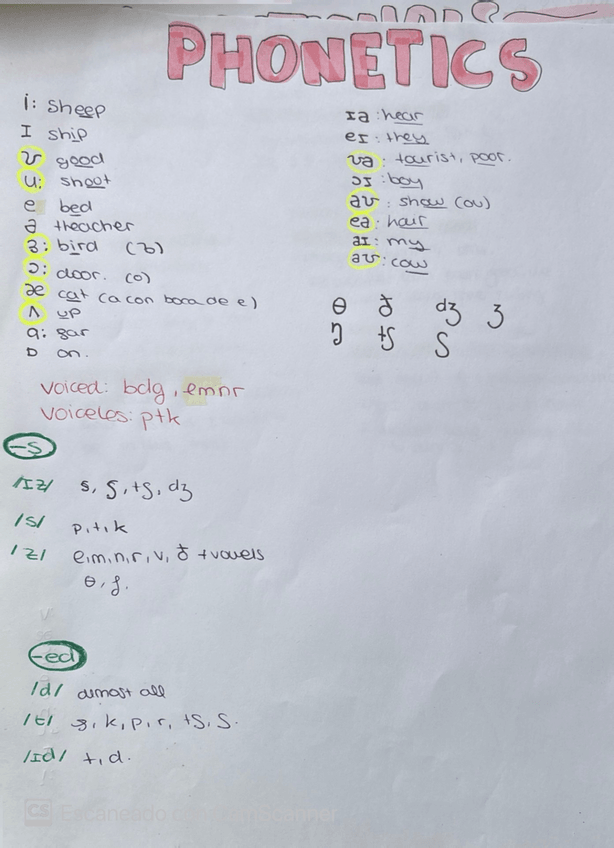 PHONETICS
i: sheep
I ship
ʊ good
u: shoot
e bed
ə theacher
ɜ: bird (ɜ)
ɔ: door. (o)
æ cat (a con boca de e)
ʌ up
ɑ: gar
ɒ on.
ɪə: hear
eɪ: they
ʊə: tourist, poor.
ɔɪ: boy
əʊ: show (ou)
eə: hair
aɪ: my
aʊ: cow
θ ð dʒ ʒ
ŋ tʃ ʃ
voiced: bdg, emnr
voiceles: ptk
-s
/ɪz/ s, ʃ, tʃ, dʒ
/s/ p, t, k
/z/ e, m, n, r, v, ð + vowels
θ, f.
-ed
/d/ almost all
/t/ s, k, p, r, tʃ, ʃ.
/ɪd/ t, d.
CS Escaneado con CamScanner